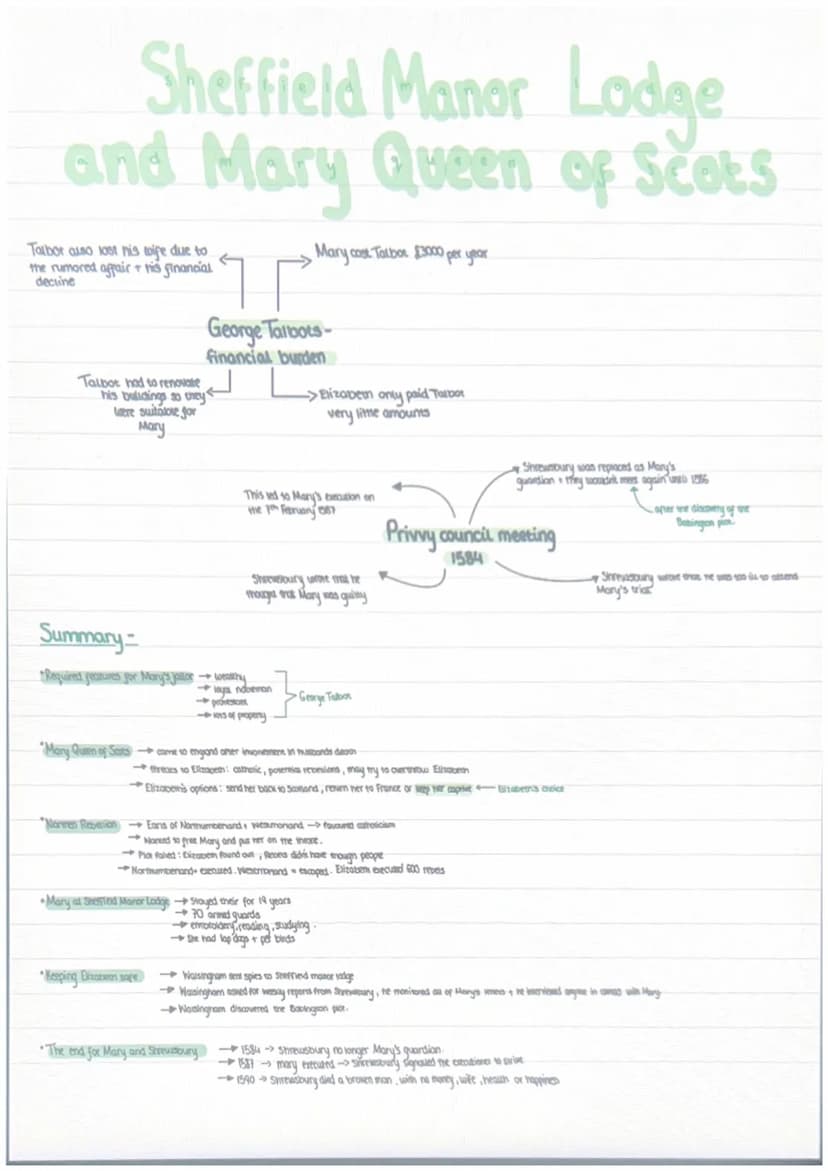 Sheffield Manor Lodge
and Mary Queen of Scots
Talbot also lost his wife due to
the rumored affair + his financial
decline
Mary cost Talbot £3000 per year
George Talbots -
financial burden
Talbot had to renovate
his buildings so they
were suitable for
Mary
Elizabeth only paid Talbot
very little amounts
Shrewsbury was replaced as Mary's
guardian + they wouldn't meet again until 1586
after the discovery of the
Babington plot.
This led to Mary's execution on
the 7th February 1587
Privvy council meeting
1584
Shrewsbury wrote that he
thought that Mary was guilty
Shrewsbury wrote that he was too ill to attend
Mary's trial
Summary -
*Required features for Mary's jailor → wealthy
→ loyal nobleman
→ protestant
→ lots of property
George Talbot
*Mary Queen of Scots → came to England after involvement in husbands death
→ threats to Elizabeth: catholic, potential rebellions, may try to overthrow Elizabeth
→ Elizabeth's options: send her back to Scotland, return her to France or keep her captive ← Elizabeth's choice
*Northern Rebellion → Earls of Northumberland + Westmorland → favoured catholicism
→ Wanted to free Mary and put her on the throne.
→ Plot failed: Elizabeth found out, Rebels didn't have enough people
→ Northumberland = executed. Westmorland = escaped. Elizabeth executed 600 rebels
*Mary at Sheffield Manor Lodge → Stayed their for 14 years
→ 70 armed guards
→ embroidery, reading, studying.
→ She had lap dogs + pet birds
*Keeping Elizabeth safe → Walsingham sent spies to Sheffield manor lodge
→ Walsingham asked for weekly reports from Shrewsbury, he monitored all of Mary's letters + he interviewed anyone in contact with Mary.
→ Walsingham discovered the Babington plot.
*The end for Mary and Shrewsbury → 1584 → Shrewsbury no longer Mary's guardian.
→ 1587 → mary executed → Shrewsbury signalled the executioner to strike
→ 1590 → Shrewsbury died a broken man, with no money, wife, health or happiness